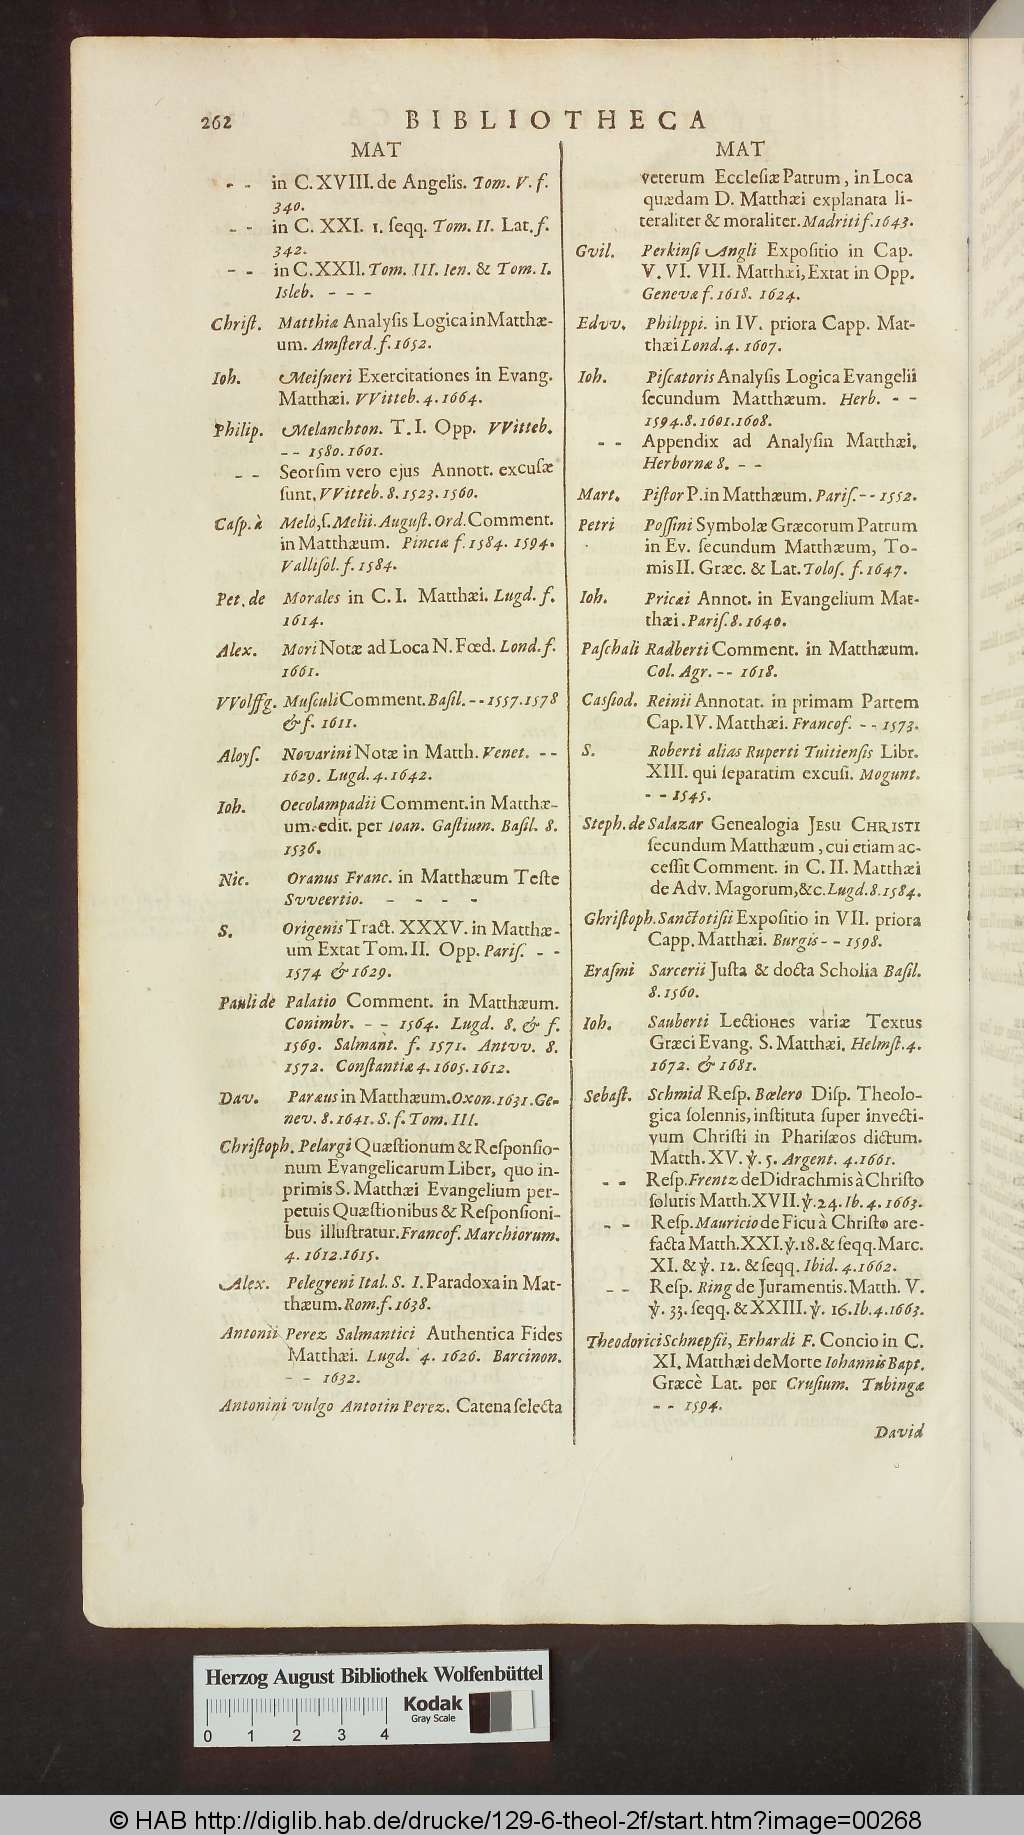 262 BIBLIOTHECA
MAT
- - in C. XVIII. de Angelis. Tom. V. f.
340.
- - in C. XXI. 1. ſeqq. Tom. II. Lat. f.
342.
- - in C. XXII. Tom. III. Ien. & Tom. I.
Isleb. - - -
Chriſt. Matthiæ Analyſis Logica in Matthæ-
um. Amſterd. f. 1652.
Ioh. Meiſneri Exercitationes in Evang.
Matthæi. VVitteb. 4. 1664.
Philip. Melanchton. T. I. Opp. VVitteb.
- - 1580. 1601.
- - Seorſim vero ejus Annott. excuſæ
ſunt. VVitteb. 8. 1523. 1560.
Caſp. à Melo, ſ. Melii. Auguſt. Ord. Comment.
in Matthæum. Pinciæ f. 1584. 1594.
Valliſol. f. 1584.
Pet. de Morales in C. I. Matthæi. Lugd. f.
1614.
Alex. Mori Notæ ad Loca N. Fœd. Lond. f.
1661.
VVolffg. Muſculi Comment. Baſil. - - 1557. 1578
& f. 1611.
Aloyſ. Novarini Notæ in Matth. Venet. - -
1629. Lugd. 4. 1642.
Ioh. Oecolampadii Comment. in Matthæ-
um. edit. per Ioan. Gaſtium. Baſil. 8.
1536.
Nic. Oranus Franc. in Matthæum Teſte
Svveertio. - - - -
S. Origenis Tract. XXXV. in Matthæ-
um Extat Tom. II. Opp. Pariſ. - -
1574 & 1629.
Pauli de Palatio Comment. in Matthæum.
Conimbr. - - 1564. Lugd. 8. & f.
1569. Salmant. f. 1571. Antvv. 8.
1572. Conſtantiæ 4. 1605. 1612.
Dav. Paræus in Matthæum. Oxon. 1631. Ge-
nev. 8. 1641. S. f. Tom. III.
Chriſtoph. Pelargi Quæſtionum & Reſponſio-
num Evangelicarum Liber, quo in-
primis S. Matthæi Evangelium per-
petuis Quæſtionibus & Reſponſioni-
bus illuſtratur. Francof. Marchiorum.
4. 1612. 1615.
Alex. Pelegreni Ital. S. I. Paradoxa in Mat-
thæum. Rom. f. 1638.
Antonii Perez Salmantici Authentica Fides
Matthæi. Lugd. 4. 1626. Barcinon.
- - 1632.
Antonini vulgo Antotin Perez. Catena ſelecta
MAT
veterum Eccleſiæ Patrum, in Loca
quædam D. Matthæi explanata li-
teraliter & moraliter. Madriti f. 1643.
Gvil. Perkinſi Angli Expoſitio in Cap.
V. VI. VII. Matthæi, Extat in Opp.
Genevæ f. 1618. 1624.
Edvv. Philippi. in IV. priora Capp. Mat-
thæi Lond. 4. 1607.
Ioh. Piſcatoris Analyſis Logica Evangelii
ſecundum Matthæum. Herb. - -
1594. 8. 1601. 1608.
- - Appendix ad Analyſin Matthæi.
Herbornæ 8. - -
Mart. Piſtor P. in Matthæum. Pariſ. - - 1552.
Petri Poſſini Symbolæ Græcorum Patrum
in Ev. ſecundum Matthæum, To-
mis II. Græc. & Lat. Toloſ. f. 1647.
Ioh. Pricæi Annot. in Evangelium Mat-
thæi. Pariſ. 8. 1640.
Paſchali Radberti Comment. in Matthæum.
Col. Agr. - - 1618.
Caſſiod. Reinii Annotat. in primam Partem
Cap. IV. Matthæi. Francof. - - 1573.
S. Roberti alias Ruperti Tuitienſis Libr.
XIII. qui ſeparatim excuſi. Mogunt.
- - 1545.
Steph. de Salazar Genealogia JESU CHRISTI
ſecundum Matthæum, cui etiam ac-
ceſſit Comment. in C. II. Matthæi
de Adv. Magorum, &c. Lugd. 8. 1584.
Ghriſtoph. Sanctotiſii Expoſitio in VII. priora
Capp. Matthæi. Burgis - - 1598.
Eraſmi Sarcerii Juſta & docta Scholia Baſil.
8. 1560.
Ioh. Sauberti Lectiones variæ Textus
Græci Evang. S. Matthæi. Helmſt. 4.
1672. & 1681.
Sebaſt. Schmid Reſp. Bœlero Diſp. Theolo-
gica ſolennis, inſtituta ſuper invecti-
vum Chriſti in Phariſæos dictum.
Matth. XV. ℣. 5. Argent. 4. 1661.
- - Reſp. Frentz de Didrachmis à Chriſto
ſolutis Matth. XVII. ℣. 24. Ib. 4. 1663.
- - Reſp. Mauricio de Ficu à Chriſto are-
facta Matth. XXI. ℣. 18. & ſeqq. Marc.
XI. & ℣. 12. & ſeqq. Ibid. 4. 1662.
- - Reſp. Ring de Juramentis. Matth. V.
℣. 33. ſeqq. & XXIII. ℣. 16. Ib. 4. 1663.
Theodorici Schnepfii, Erhardi F. Concio in C.
XI. Matthæi de Morte Iohannis Bapt.
Græcè Lat. per Cruſium. Tubingæ
- - 1594.
David
Herzog August Bibliothek Wolfenbüttel
Kodak
Gray Scale
0 1 2 3 4
© HAB http://diglib.hab.de/drucke/129-6-theol-2f/start.htm?image=00268